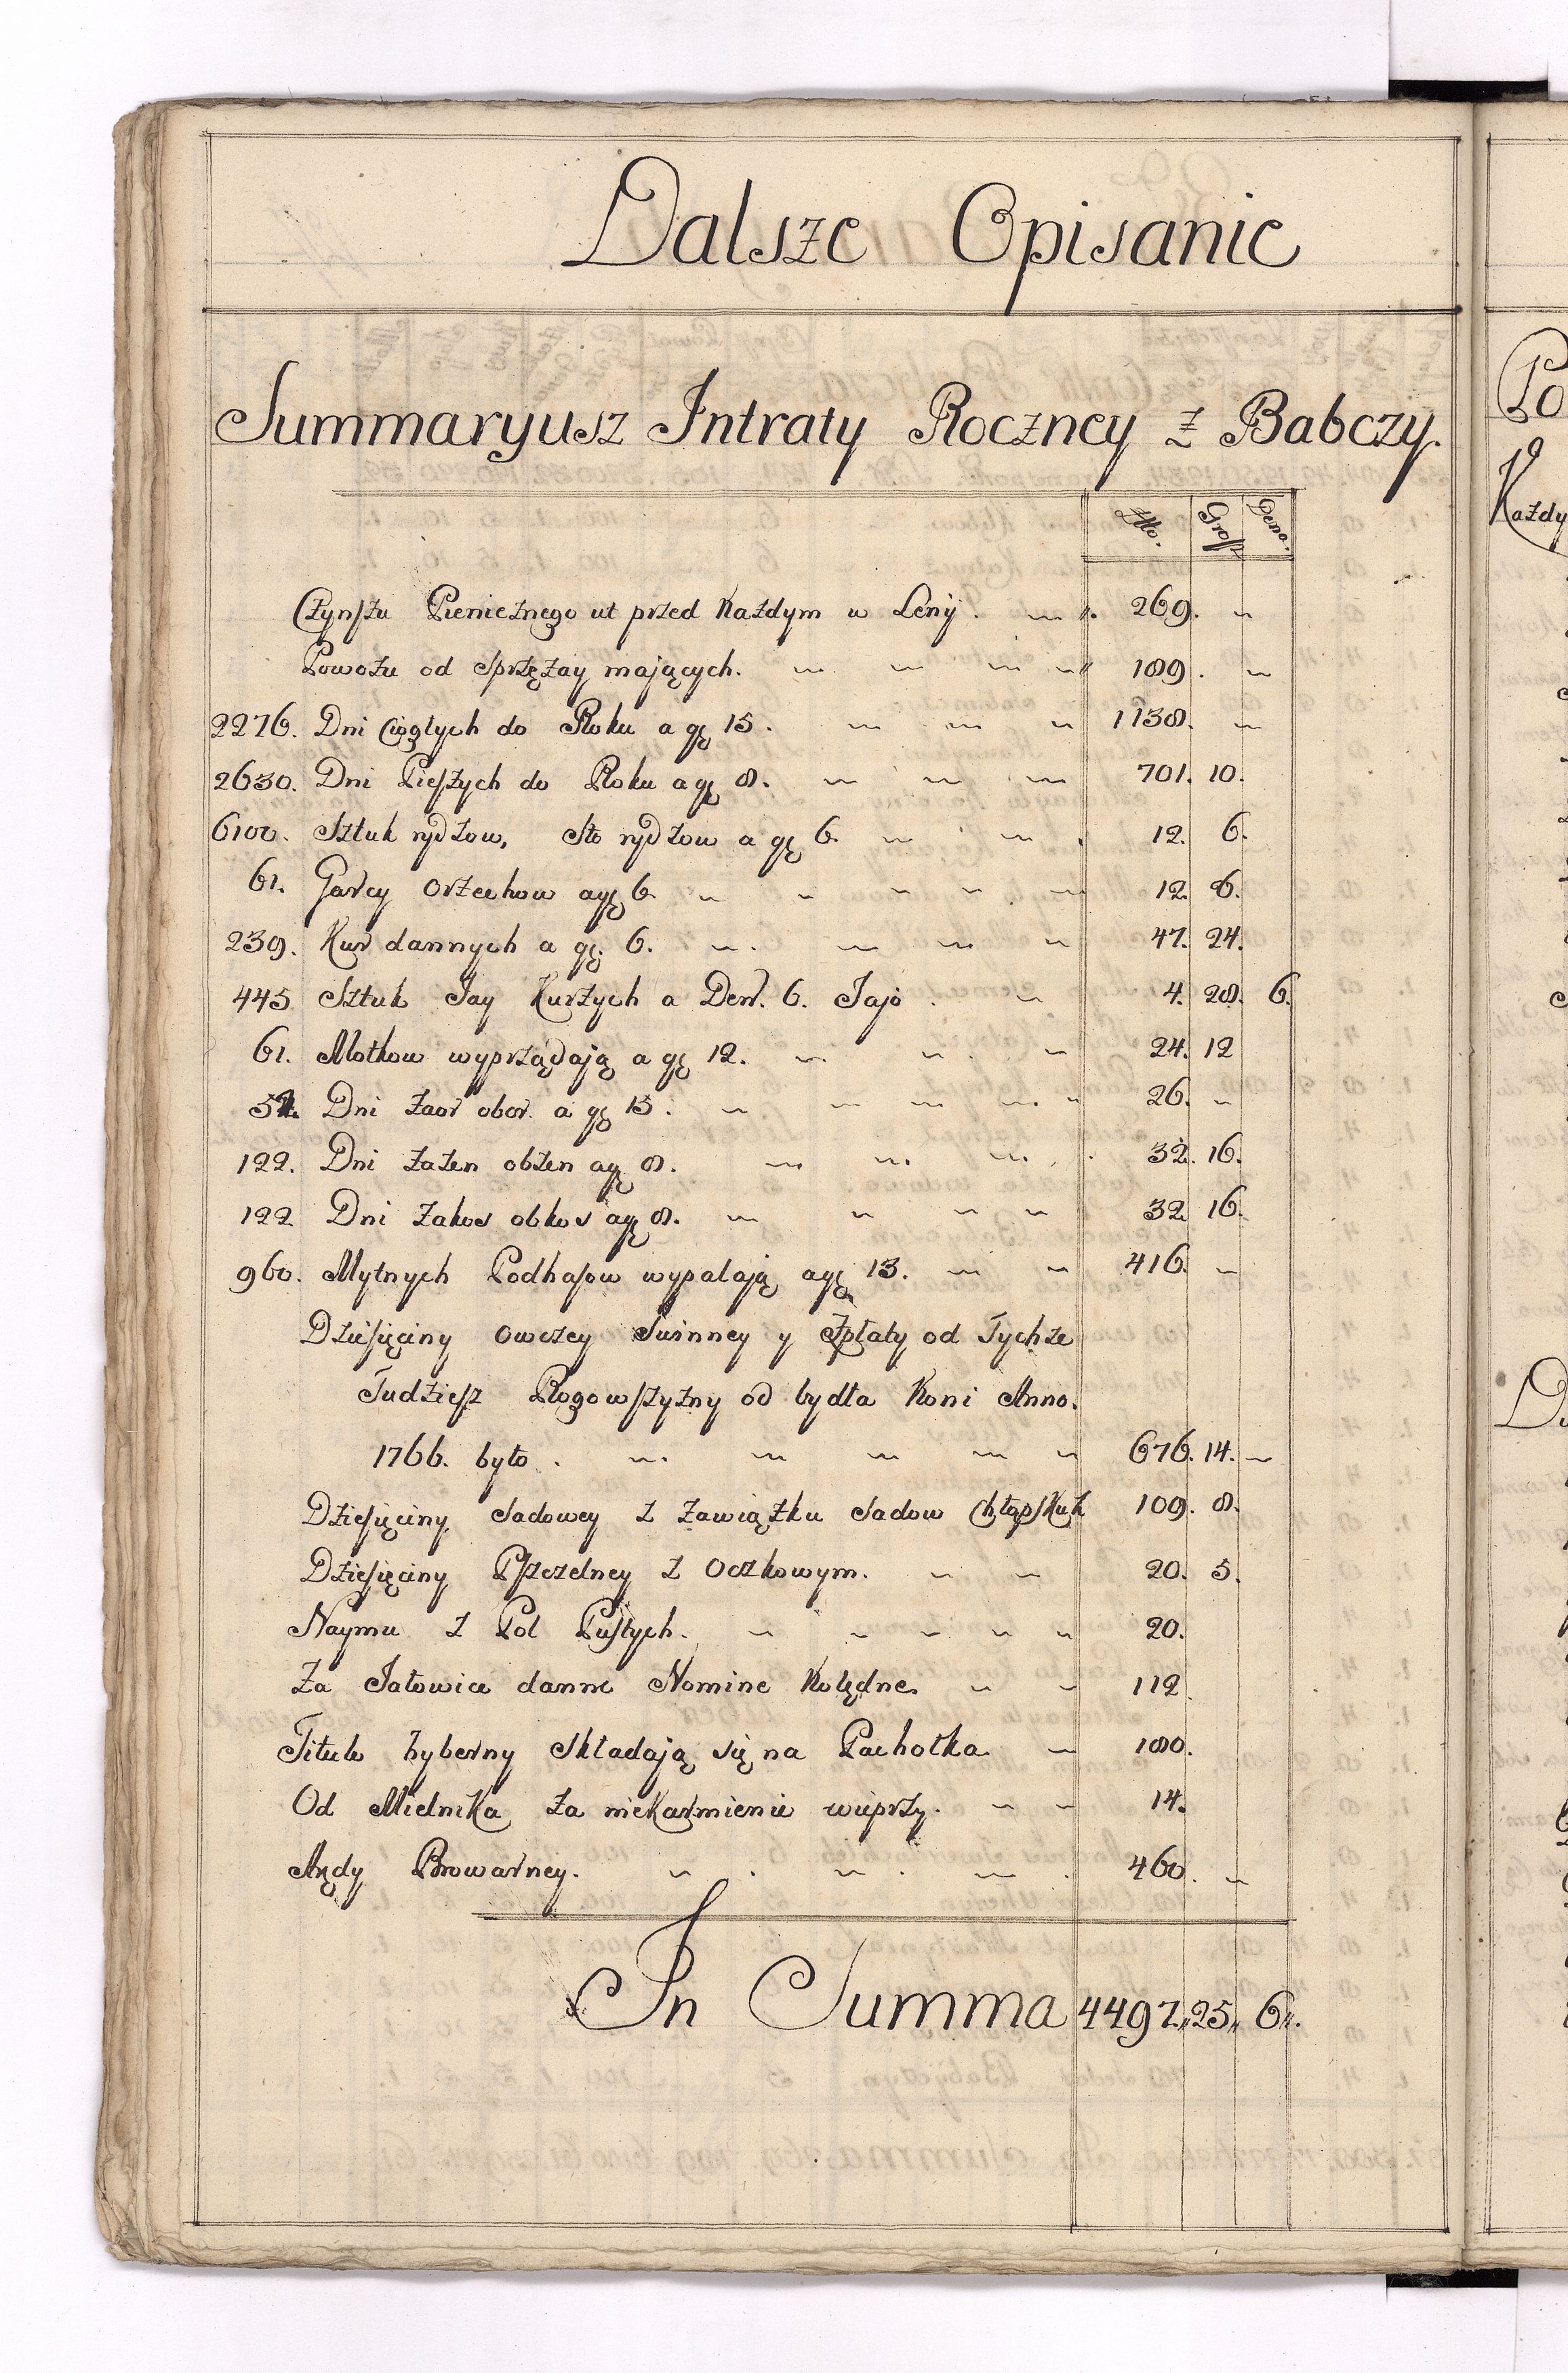 Dalsze Opisanie
Summaryusz Intraty Roczney z Babczy.
Złło. Grosz Dena.
Czynszu Pienieżnego ut przed Każdym w Leny. 269.
Powozu od Sprzężay mających. 189.
2276. Dni Ciągłych do Roku a gr 15. 1138.
2630. Dni Pieszych do Roku a gr 8. 701. 10.
6100. Sztuk rydzow, Sto rydzow a gr 6. 12. 6.
61. Garcy Orzechow a gr 6. 12. 6.
239. Kur dannych a gr. 6. 47. 24.
445 Sztuk Jay Kurzych a Den. 6. Jajo. 4. 28. 6.
61. Motkow wyprządają a gr 12. 24. 12
52. Dni zaor obor. a gr 15. 26.
122. Dni zażen obżen a gr 8. 32. 16.
122 Dni zakos obkos a gr 8. 32 16.
960. Mytnych Podhasow wypalają a gr 13. 416.
Dziesięciny owczey Swinney y Zpłaty od Tychże
Tudziesz Rogowszyzny od bydła Koni Anno.
1766. było. 676. 14.
Dziesięciny Sadowey z zawiązku Sadow Chłopskich 109. 8.
Dziesięciny Pszczelney z Oczkowym. 20. 5.
Naymu z Pol Pustych. 20.
Za Jałowice danne Nomine Kolędne. 112
Titulo hyberny Składają się na Pachołka 180.
Od Mielnika za niekarmienie wieprzy. 14.
Arędy Browarney. 460.
In Summa 4497,, 25,, 6,,.
Po
Każdy